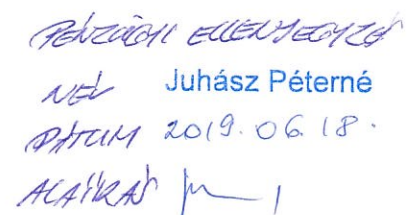 PÉNZÜGYI ELLENJEGYZŐ
NÉV Juhász Péterné
DÁTUM 2019.06.18.
ALÁÍRÁS